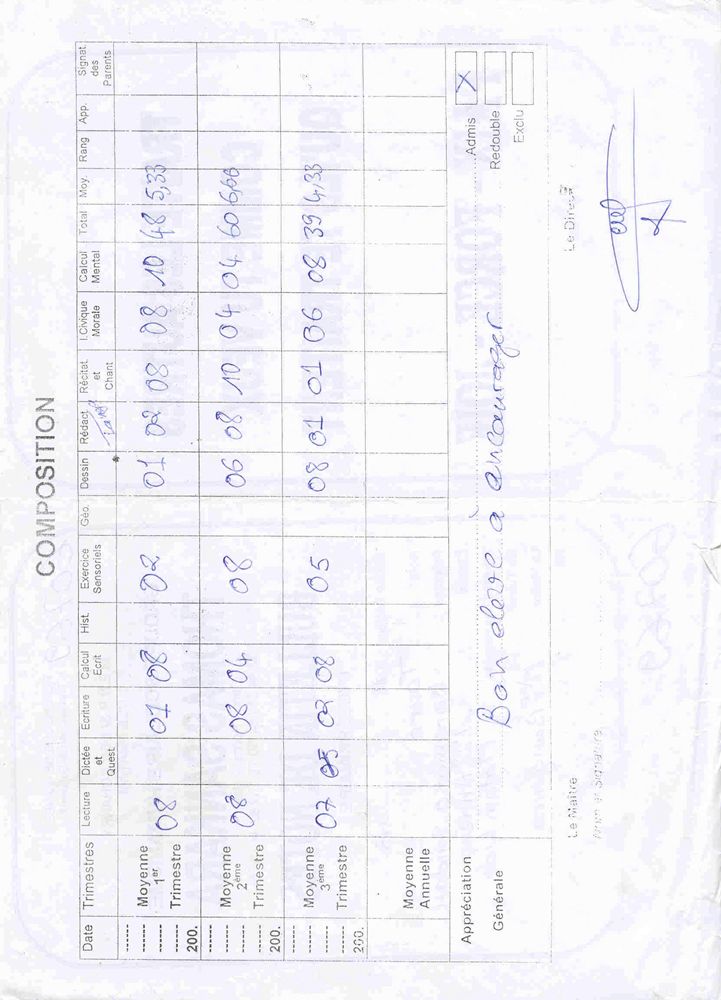 COMPOSITION
Date Trimestres Lecture Dictée et Quest. Ecriture Calcul Ecrit Hist. Exercice Sensoriels Géo. Dessin Rédact Récitat. et Chant I.Civique Morale Calcul Mental Total Moy. Rang App. Signat. des Parents
200. Moyenne 1er Trimestre 08 01 08 02 01 02 08 08 10 48 5,33
200. Moyenne 2ème Trimestre 08 08 04 08 06 08 10 04 04 60 6,66
200. Moyenne 3ème Trimestre 07 05 02 08 05 08 01 01 06 08 39 4,33
Moyenne Annuelle
Appréciation Générale Bon eleve à ancourager Admis X
Redouble
Exclu
Le Maître Le Direct